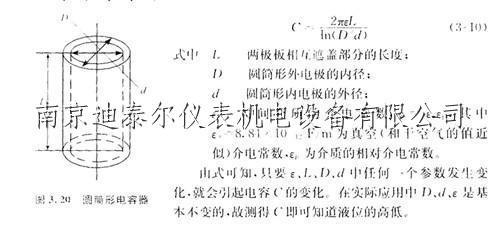 D
d
C = 2πεL / ln(D/d) (3-10)
式中 L 两极板相互遮盖部分的长度;
D 圆筒形外电极的内径;
d 圆筒形内电极的外径;
南京迪泰尔仪表机电设备有限公司
其中
为真空(和干空气的值近
似)介电常数,εₚ为介质的相对介电常数。
由式可知,只要 ε、L、D、d 中任何一个参数发生变
化,就会引起电容 C 的变化。在实际应用中 D、d、ε 是基
本不变的,故测得 C 即可知道液位的高低。
图 3.20 圆筒形电容器